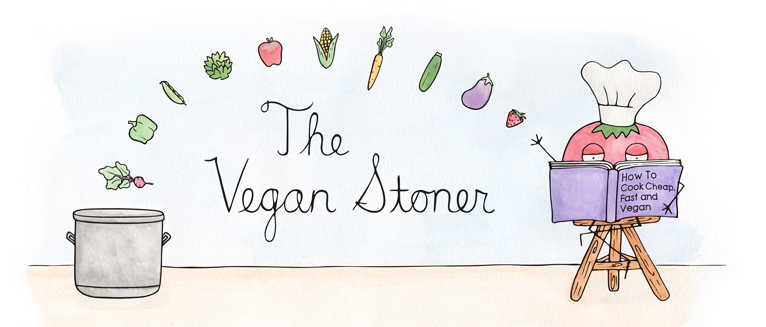 The
Vegan Stoner
How To
Cook Cheap,
Fast and
Vegan